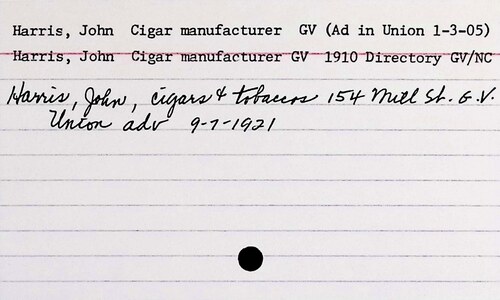 Harris, John Cigar manufacturer GV (Ad in Union 1-3-05)
Harris, John Cigar manufacturer GV 1910 Directory GV/NC
Harris, John, cigars & tobaccos 154 Mill St. G.V.
Union adv 9-7-1921